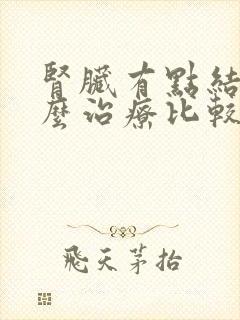 腎臟有點結
麼治療比較
飛天茅抬